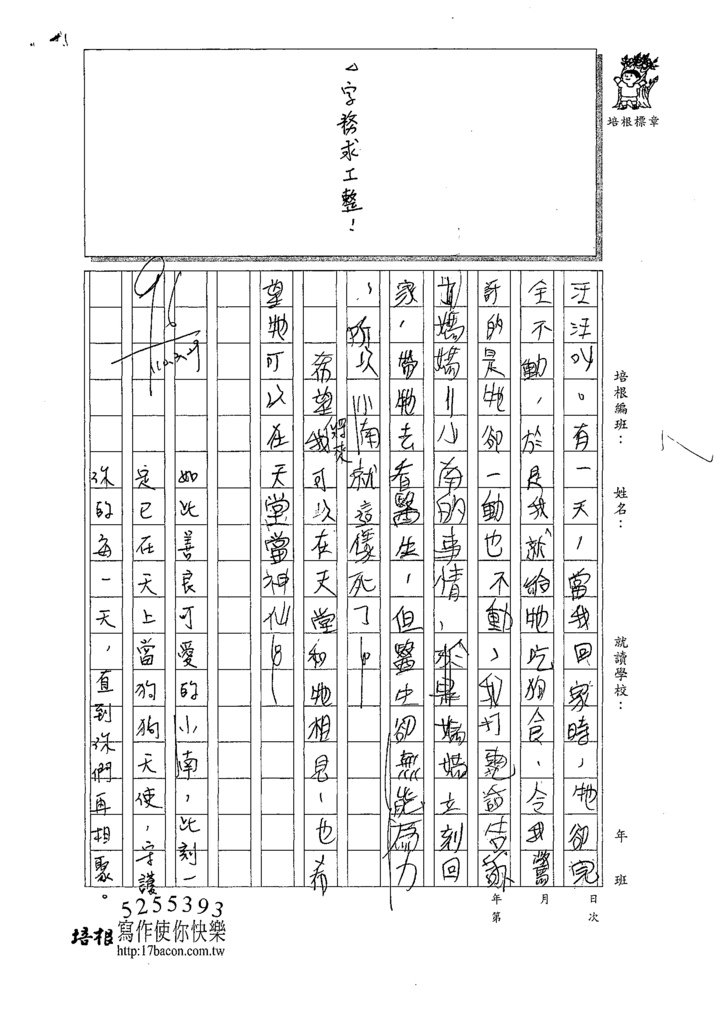 字務求工整！
培根標章
培根編班：
姓名：
就讀學校：
年
班
年
月
日
第
次
汪汪叫。有一天，當我回家時，牠卻完
全不動，於是我就給牠吃狗食，令我驚
訝的是牠卻一動也不動，我打電話告訴
媽媽小南的事情，於是媽媽立刻回
家，帶牠去看醫生，但醫生卻無能為力
，所以小南就這樣死了。
希望我將來可以在天堂和牠相見，也希
望牠可以在天堂當神仙。
如此善良可愛的小南，此刻一
定已在天上當狗狗天使，守護
你的每一天，直到你們再相聚。
96
5255393
培根 寫作使你快樂
http:17bacon.com.tw